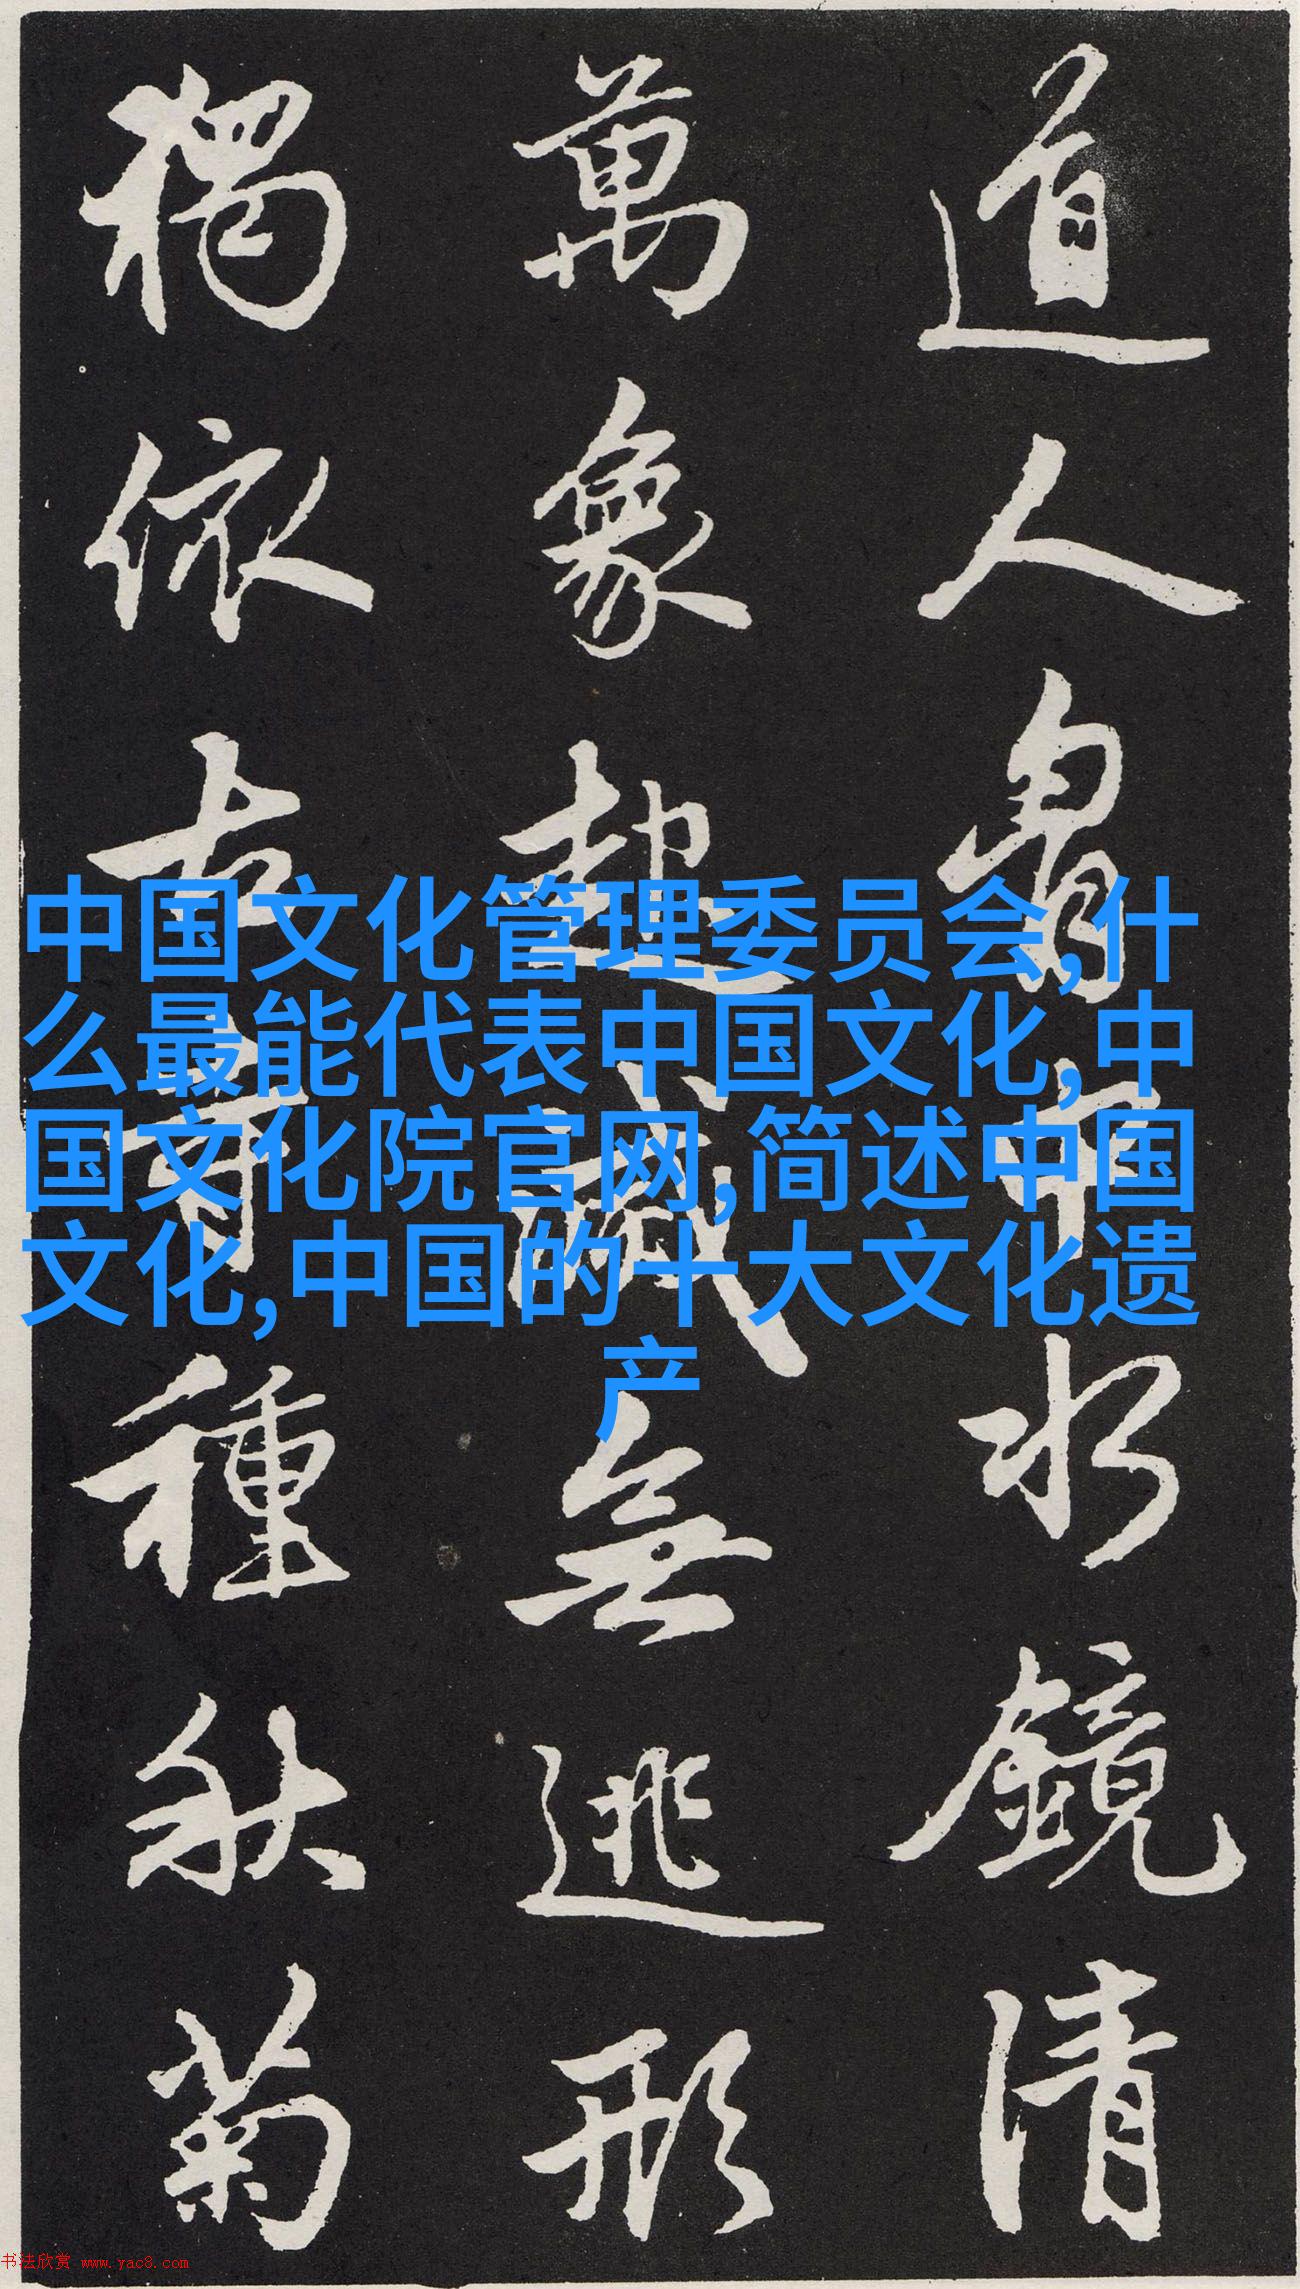 道人胸中水鏡清
萬象起滅無逃形
獨依古寺種秋菊
中国文化管理委员会,什
么最能代表中国文化,中
国文化院官网,简述中国
文化,中国的十大文化遗
产
书法欣赏 www.yac8.com